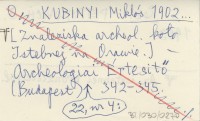 KUBINYI Miklós, 1902...
[Znaleziska archeol. koło
Istebnej na Orawie.] —
Archeologiai Értesitő
(Budapest) 342-345.
22, nr 4: